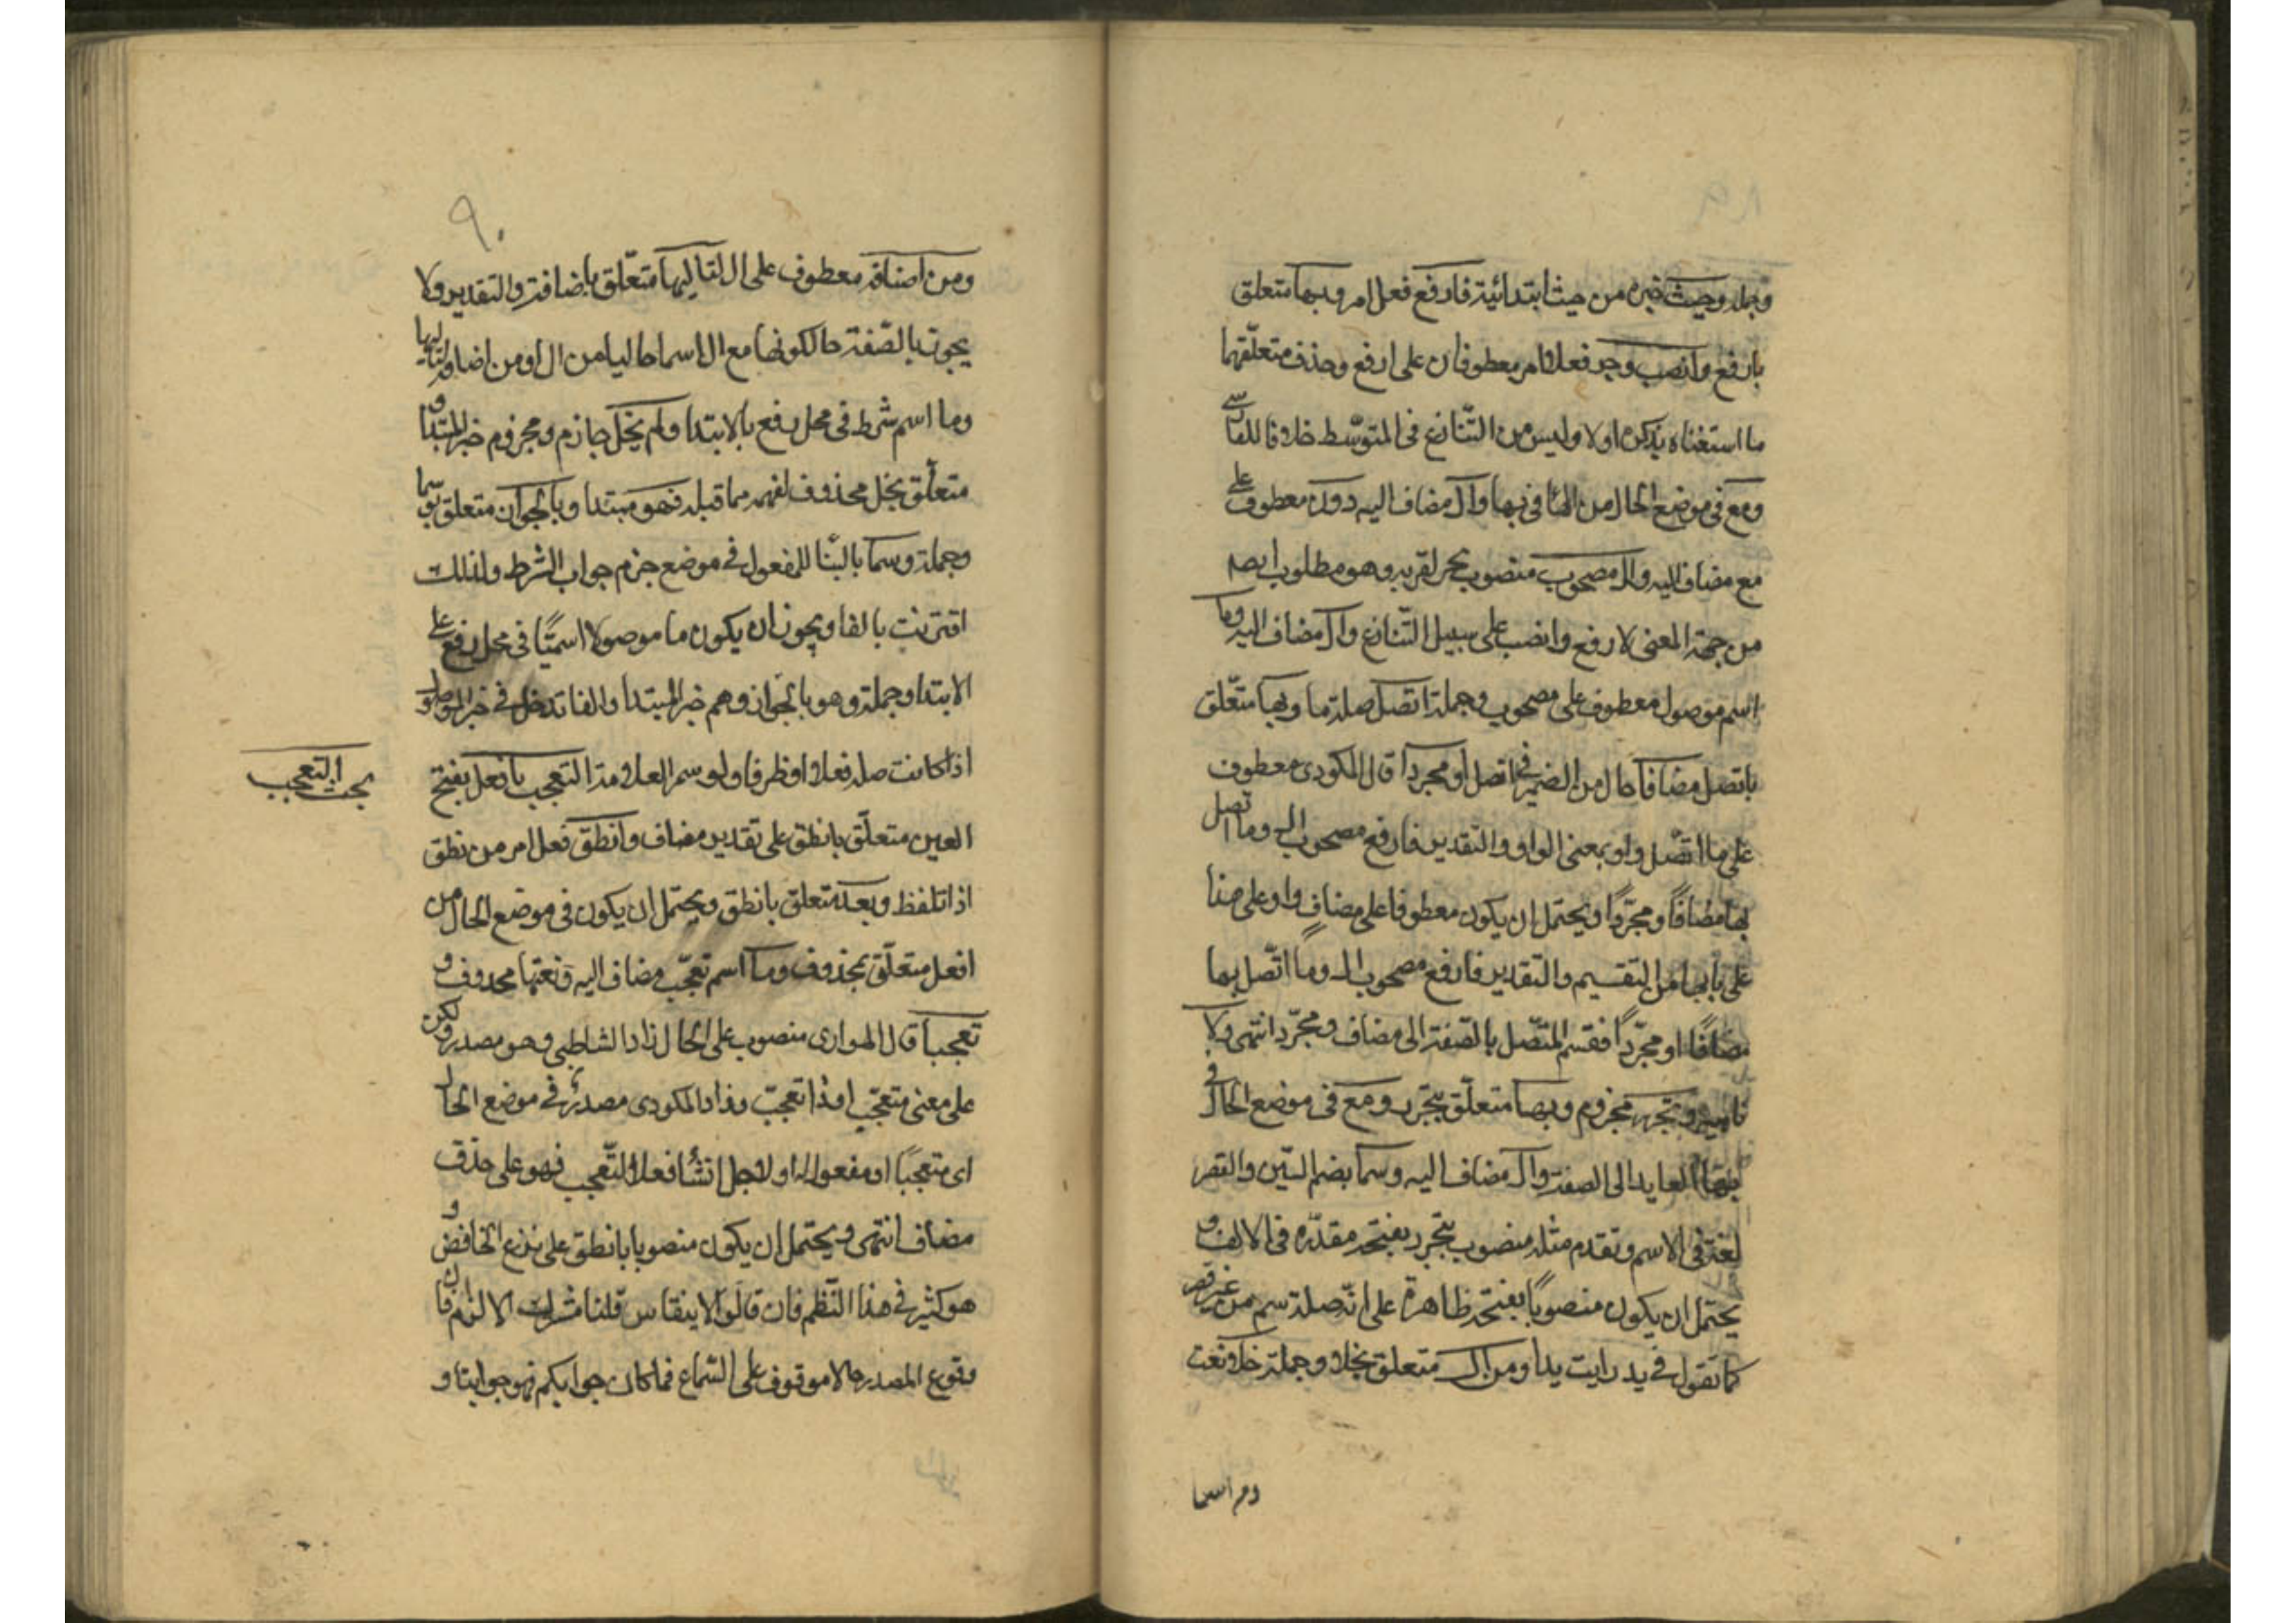 وجملة وحيث خبره من حيث ابتدائية فارفع فعل امر وبها متعلق
بارفع وانصب وجر فعلا امر معطوفان على ارفع وحذف متعلقهما
ما استغناه بذكره اولا وليس من التنازع في المتوسط خلافا للفارسي
ومع في موضع الحال من الها في بها وال مضاف اليه دون معطوف على
مع مضاف اليه وال مصحوب منصوب بجر لقربه وهو مطلوب ايضا
من جهة المعنى لارفع وانصب على سبيل التنازع وال مضاف اليه وما
اسم موصول معطوف على مصحوب وجملة اتصل صلة ما وبها متعلق
باتصل مضافا حال من الضمير في اتصل او مجردا قال المكودي معطوف
على ما اتصل واو بمعنى الواو والتقدير فارفع مصحوب ال وما اتصل
بها مضافا ومجردا ويحتمل ان يكون معطوفا على مضاف واو على هذا
على بابها من التقسيم والتقدير فارفع مصحوب ال وما اتصل بها
مضافا او مجردا فقسم المتصل بالصفة الى مضاف ومجرد انتهى ولا
ناهية وتجرر مجزوم وبها متعلق بتجرر ومع في موضع الحال في
العايد الى الصفة وال مضاف اليه وسما بضم السين والقصر
لغة في الاسم وتقدم مثله منصوب بتجرر بفتحة مقدره في الالف و
يحتمل ان يكون منصوبا بفتحة ظاهرة على انه صلة سم من غير قصر
كما تقول في يد رايت يدا ومن ال متعلق بخلا وجملة خلا نعت
ومن اضافة معطوف على ال لتاليها متعلق باضافة والتقدير ولا
يجوز بالصفة حال كونها مع ال اسما خاليا من ال او من اضافة لتاليها
وما اسم شرط في محل رفع بالابتدا ولم يخل جازم ومجزوم خبر المبتدا و
متعلق يخل محذوف لفهمه مما قبله فهو مبتدا وبالجواز متعلق بوسما
وجملة وسما بالبنا للمفعول في موضع جزم جواب الشرط ولذلك
اقترنت بالفا ويجوز ان يكون ما موصولا اسميا في محل رفع على
الابتدا وجملة وهو بالجواز وهم خبر المبتدا والفا تدخل في خبر الموصول
اذا كانت صلة فعلا او ظرفا ولو سم العلامة التعجب بافعل بفتح
بحث التعجب
العين متعلق بانطق على تقدير مضاف وانطق فعل امر من نطق
اذا تلفظ وبعد متعلق بانطق ويحتمل ان يكون في موضع الحال من
افعل متعلق بمحذوف وما اسم تعجب مضاف اليه ونعتها محذوف و
تعجبا قال الهواري منصوب على الحال زاد الشاطبي وهو مصدر ولكن
على معنى متعجب او ذا تعجب وزاد المكودي مصدر في موضع الحال
اى متعجبا او مفعول له او لاجل انشا فعل التعجب فهو على حذف
مضاف انتهى ويحتمل ان يكون منصوبا بانطق على نزع الخافض و
هو كثير في هذا النظم فان قالوا لا ينقاس قلنا مشترك الالزام فان
وقوع المصدر حالا موقوف على السماع فما كان جوابكم فهو جوابنا و